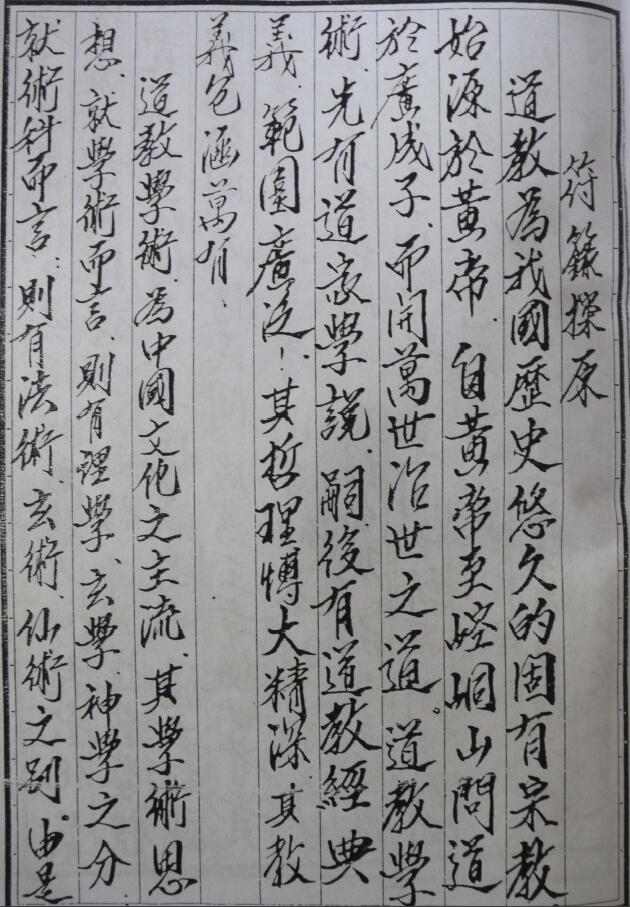 符籙探原
道教為我國歷史悠久的固有宗教
始源於黃帝、自黃帝至崆峒山問道
於廣成子、而開萬世治世之道。道教學
術、先有道家學說、嗣後有道教經典
義、範圍廣泛！其哲理博大精深其教
義包涵萬有、
道教學術、為中國文化之主流、其學術思
想、就學術而言、則有理學、玄學、神學之分
就術科而言、則有法術、玄術、仙術之別、由是